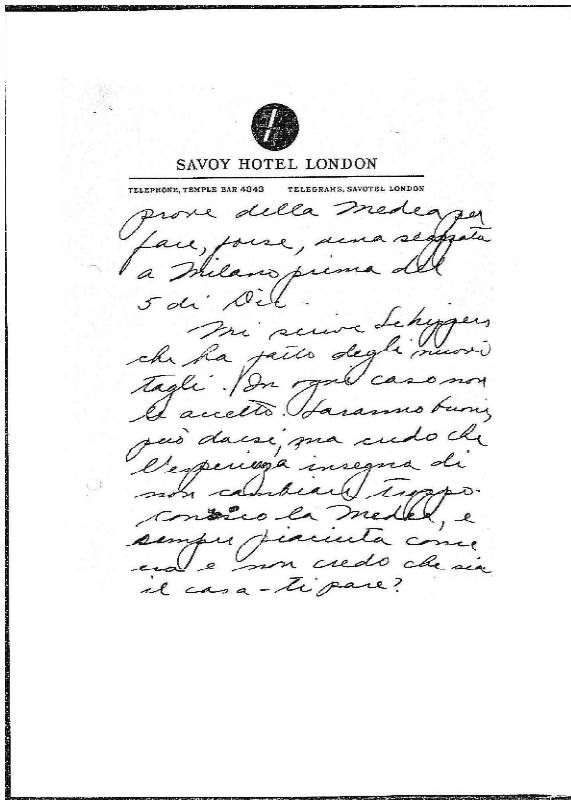 SAVOY HOTEL LONDON
TELEPHONE, TEMPLE BAR 4343 TELEGRAMS, SAVOTEL LONDON
prove della Medea per
fare, forse, una scappata
a Milano prima del
5 di Dic.
Mi scrive Schippers
che ha fatto degli nuovi
tagli. In ogni caso non
le accetto. Saranno buoni,
può darsi, ma credo che
l'esperienza insegna di
non cambiare troppo.
conosco la Medea, e
sempre piaciuta come
era e non credo che sia
il caso - ti pare?